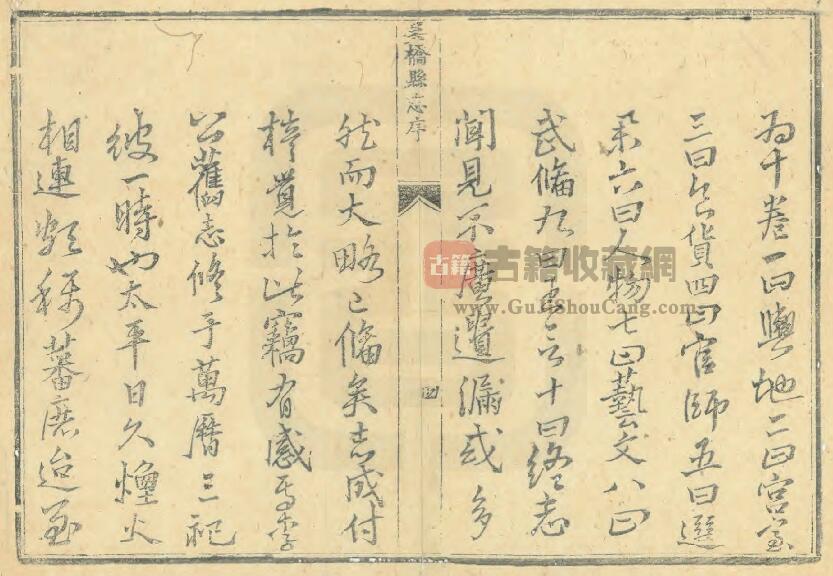 為十卷一曰輿地二曰宮室
三曰食貨四曰官師五曰選
舉六曰人物七曰藝文八曰
武備九曰 十曰總志
聞見不廣遺漏或多
吳橋縣志序
四
然而大略已備矣志成付
梓覺於此竊有感焉李
公舊志修于萬曆三祀
彼一時也太平日久煙火
相連 稱蕃庶迨至
古籍
古籍收藏網
www.GuJiShouCang.com